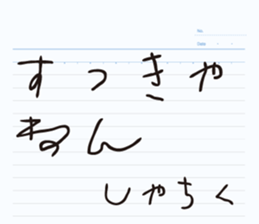 No.
Date
すっきや
ねん
しゃちく